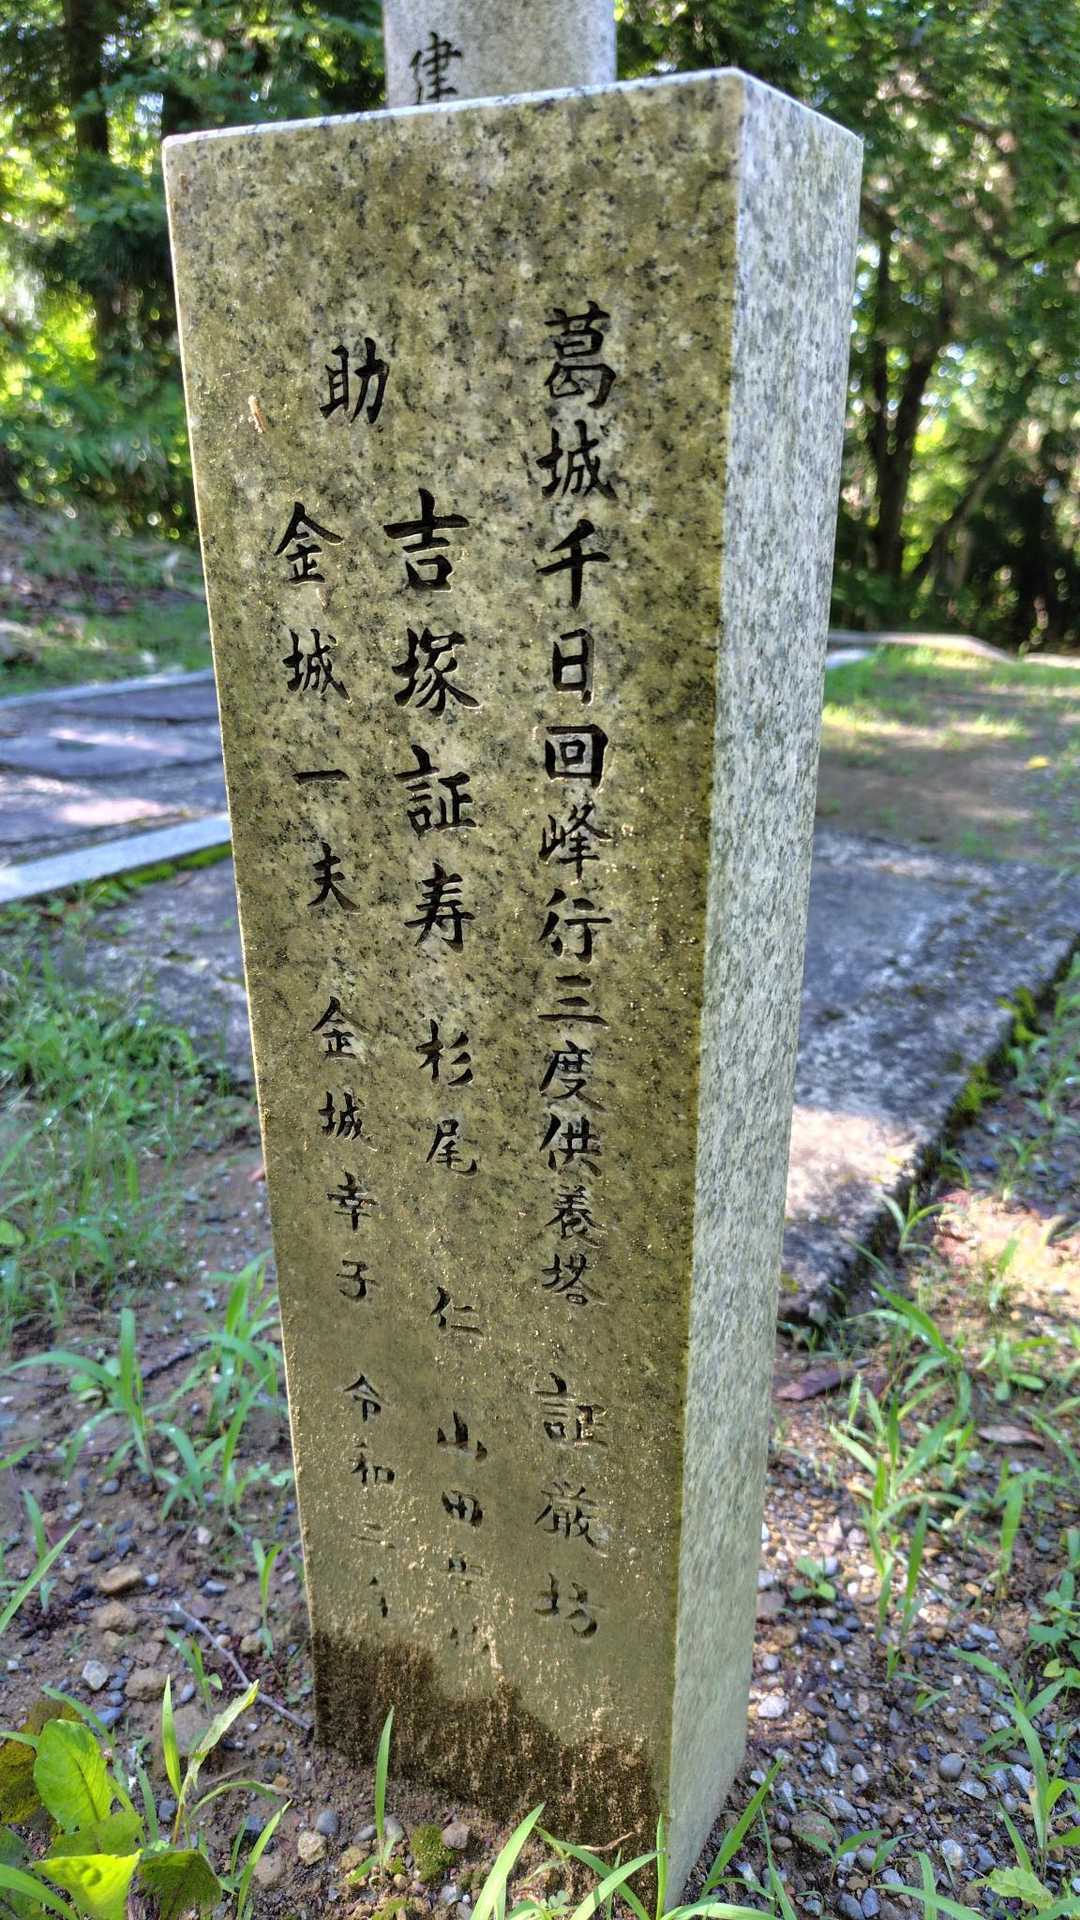 建
葛城千日回峰行三度供養塔 証厳坊
吉塚証寿 杉尾 仁 山田
助 金城一夫 金城幸子 令和二